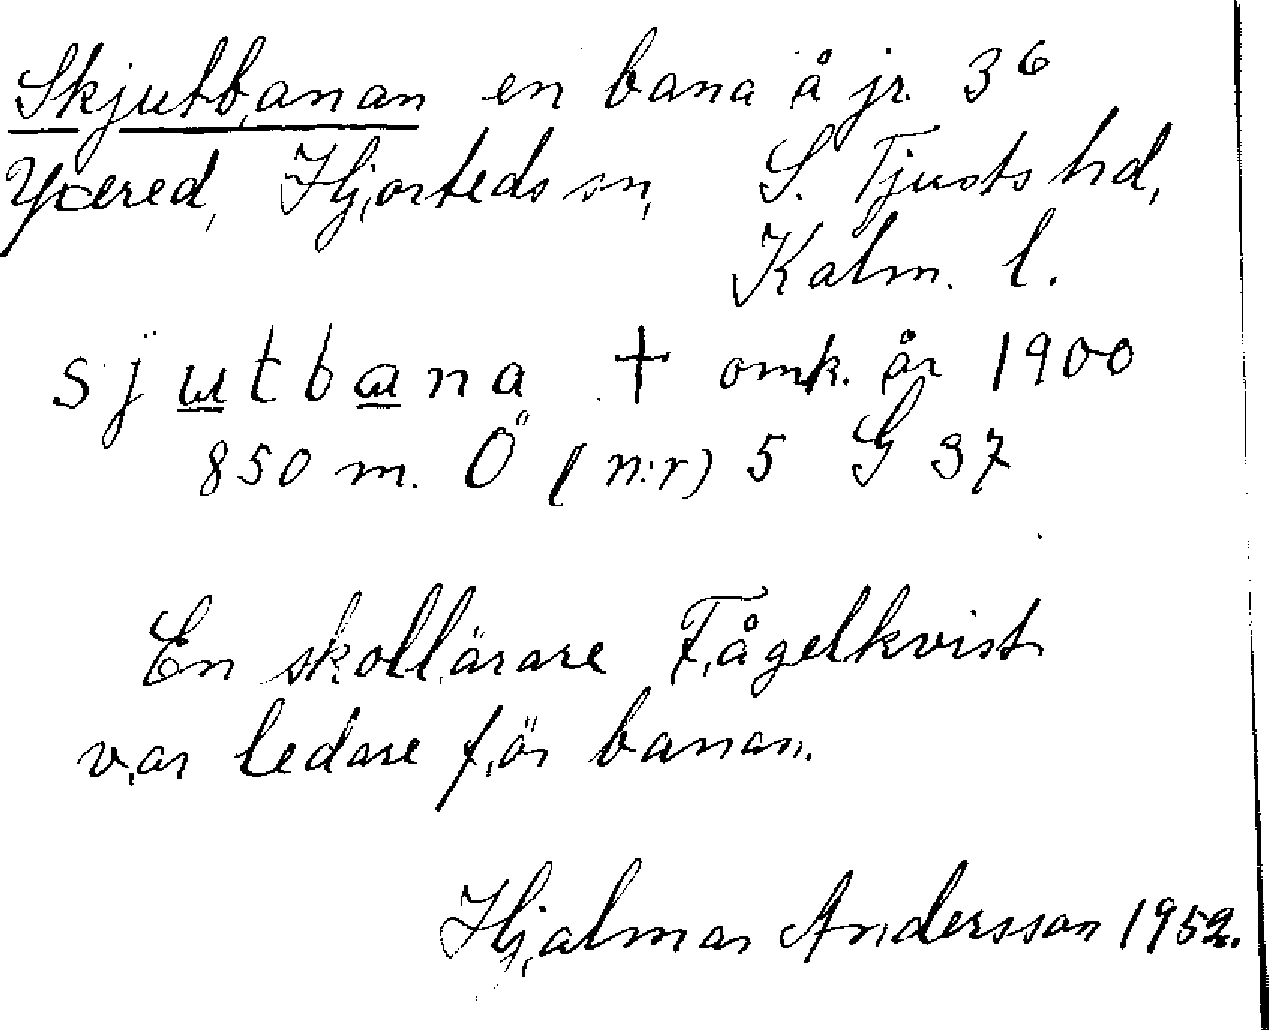 Skjutbanan en bana å jr. 36
Yxered, Hjorteds sn, S. Tjusts hd,
Kalm. l.
sjutbana † omk. år 1900
850 m. Ö (n:r) 5 G 37
En skollärare Fågelkvist
var ledare för banan.
Hjalmar Andersson 1952.